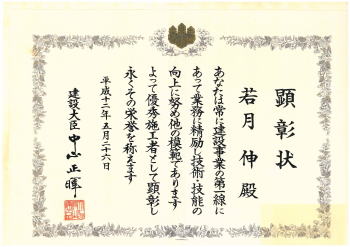 顕彰状
若月伸殿
あなたは常に建設事業の第一線に
あって業務に精励し技術・技能の
向上に努め他の模範であります
よって優秀施工者として顕彰し
永くその栄誉を称えます
平成十二年五月二十六日
建設大臣 中山正暉